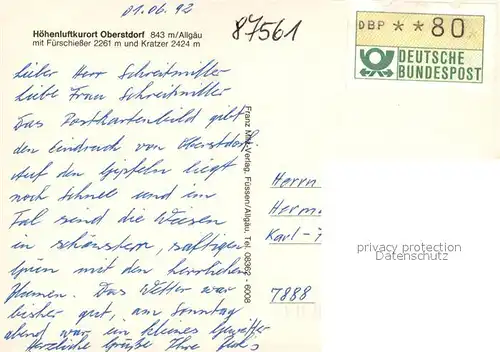 01.06.92
87561
Höhenluftkurort Oberstdorf 843 m/Allgäu
mit Fürschießer 2261 m und Kratzer 2424 m
DBP **80
DEUTSCHE
BUNDESPOST
Lieber Herr Schreitmiller
Liebe Frau Schreitmiller
Das Postkartenbild gibt
den Eindruck von Oberstdorf.
Auf den Gipfeln liegt
noch Schnee und im
Tal sind die Wiesen
in schönstem, saftigen
Grün mit den herrlichen
Blumen. Das Wetter war
bisher gut, am Sonntag
abend war ein kleines Gewitter
Herzliche Grüße Ihre
Franz Milz-Verlag, Füssen/Allgäu, Tel. 08362 - 6008
Herrn
Herm
Karl -
7888
privacy protection
Datenschutz